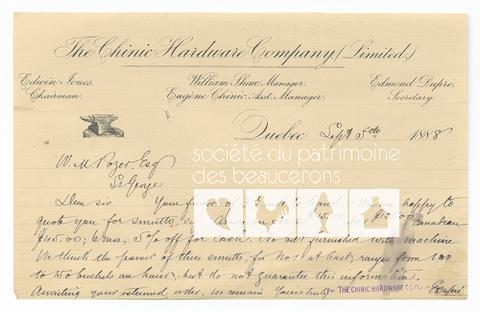 The Chinic Hardware Company (Limited.)
Edwin Jones. William Shaw, Manager. Edmond Dupré.
Chairman. Eugène Chinic, Asst. Manager. Secretary.
Quebec Sept 5th 1888
société du patrimoine
des beaucerons
W. M. Pozer, Esq
St George
Dear sir Your favor of to hand happy to
quote you for smutts, Canadian
6 mos, 5% off for Cash. We not furnished with machine
We think the power of these smutts, for No at least, ranges from
to bushels an hour, but do not guarantee this information.
Awaiting your returned order, we remain Yours truly THE CHINIC HARDWARE CO